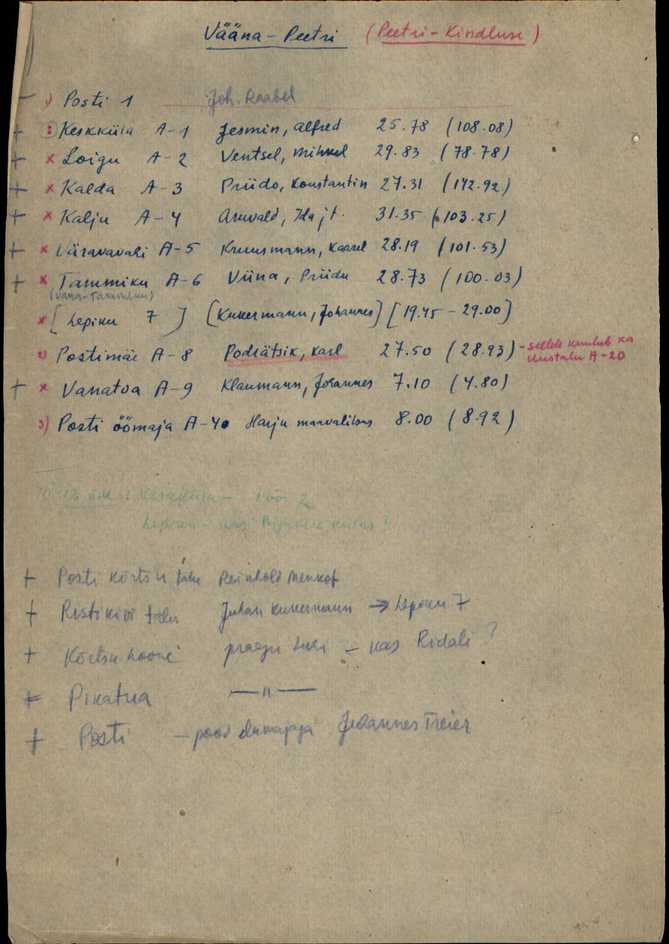 Vääna - Peetri (Peetri - Kindluse)
1) Posti 1 Joh. Raabel
+ Kesküla A-1 Jesmin, Alfred 25.78 (108.08)
+ x Loigu A-2 Ventsel, Mihkel 29.83 (78.78)
+ x Kalda A-3 Priido, Konstantin 27.31 (142.92)
+ x Kalju A-4 Ida j.t. 31.35 (103.25)
+ x Väravavahi A-5 Kruusmann, Kaarel 28.19 (101.53)
+ x Tammiku A-6 Viina, Priidu 28.73 (100.03)
x [Lepiku 7] (Kukermann, Johannes) [19.45 - 29.00]
2) Postimäe A-8 Podrätsik, Karl 27.50 (28.93) - sellele kuulub ka
A-20
+ x Vanatoa A-9 Klaumann, Johannes 7.10 (4.80)
3) Posti öömaja A-40 Harju maavalitsus 8.00 (8.92)
+ Posti kõrtsu Reinhold
+ Ristikivi Juhan Kukermann → Lepiku 7
+ Kõrtsu hoone praegu - kas Ridali?
+ Pikatua — " —
+ Posti - pood Johannes Treier